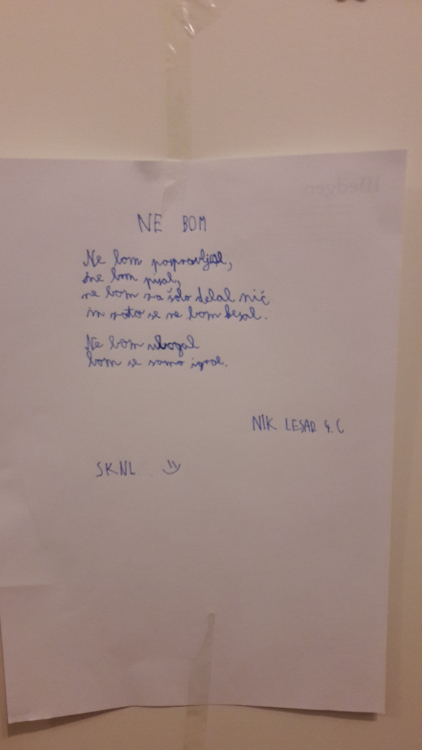 NE BOM
Ne bom popravljal,
ne bom pisal,
ne bom za šolo delal nič
in zato se ne bom kesal.
Ne bom ubogal
bom se samo igral.
NIK LESAR 4. C
SKNL